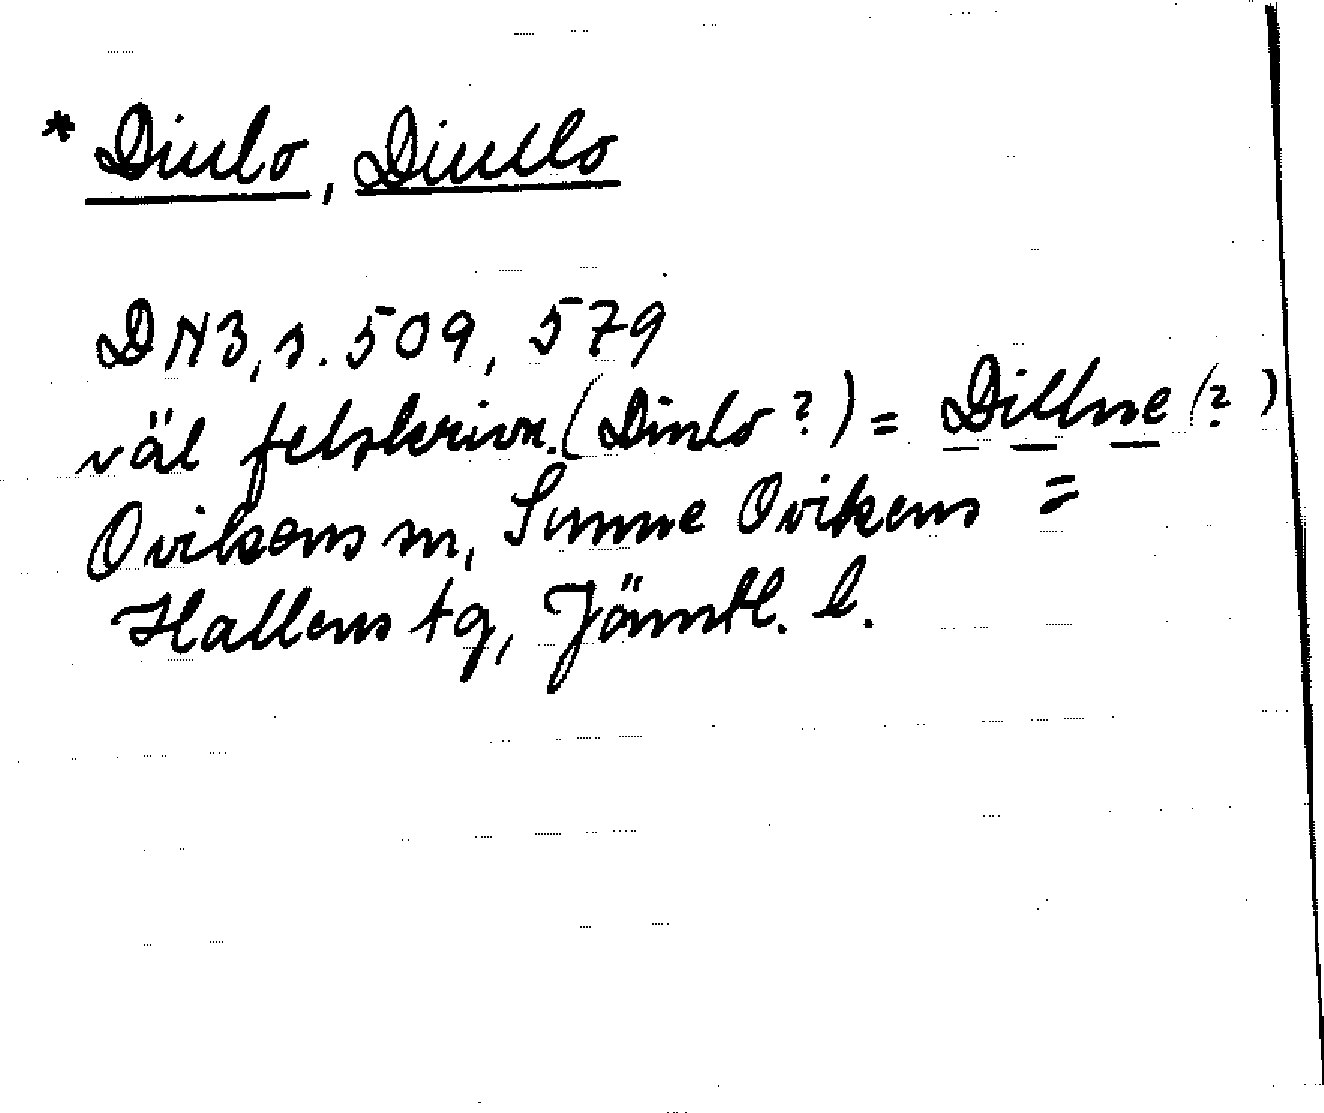 * Diulo, Diullo
DN3, s. 509, 579
väl felskrivn. (Dinlo?) = Dillne (?)
Ovikens sn, Sunne Ovikens =
Hallens tg, Jämtl. l.